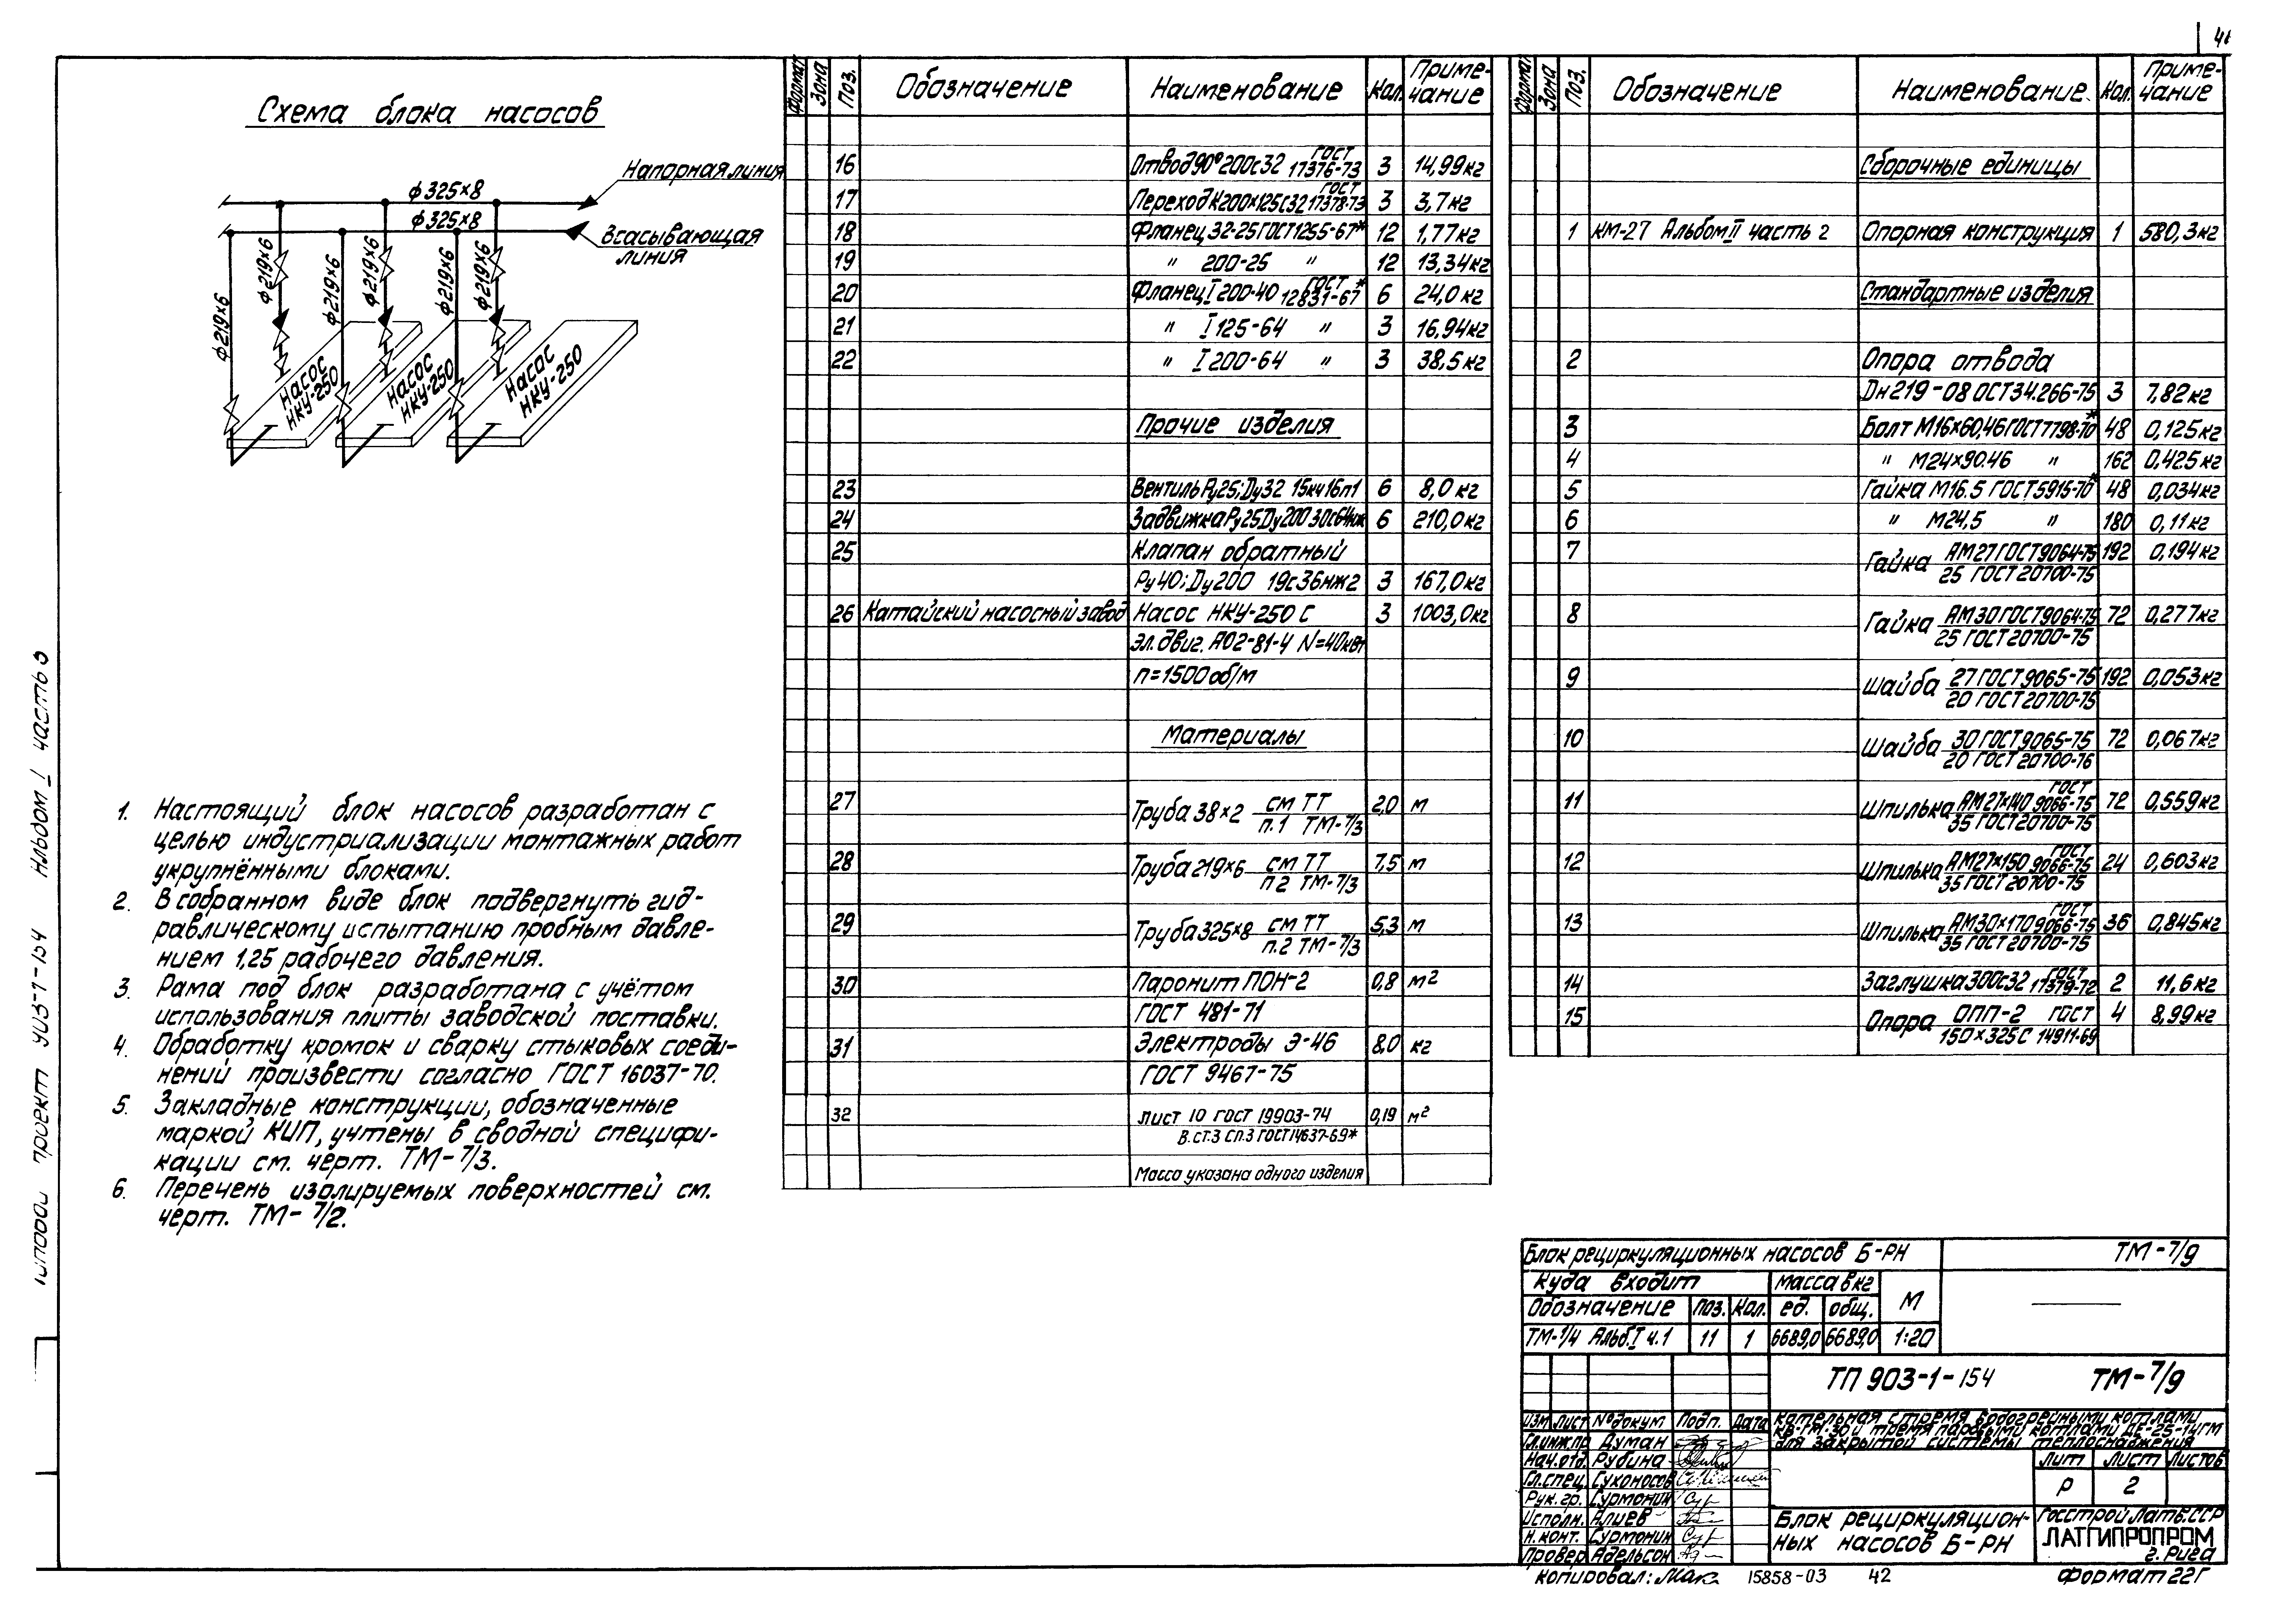 Схема блока насосов
Напорная линия
ф325×8
ф325×8
Всасывающая
линия
ф219×6
ф219×6
ф219×6
ф219×6
ф219×6
ф219×6
Насос
НКУ-250
Насос
НКУ-250
Насос
НКУ-250
1. Настоящий блок насосов разработан с
целью индустриализации монтажных работ
укрупнёнными блоками.
2. В собранном виде блок подвергнуть гид-
равлическому испытанию пробным давле-
нием 1,25 рабочего давления.
3. Рама под блок разработана с учётом
использования плиты заводской поставки.
4. Обработку кромок и сварку стыковых соеди-
нений произвести согласно ГОСТ 16037-70.
5. Закладные конструкции, обозначенные
маркой КИП, учтены в сводной специфи-
кации см. черт. ТМ-7/3.
6. Перечень изолируемых поверхностей см.
черт. ТМ-7/2.
Формат Зона Поз. Обозначение Наименование Кол. Приме-
чание
16 Отвод 90° 200с32 ГОСТ 17376-73 3 14,99кг
17 Переход К200×125с32 ГОСТ 17378-73 3 3,7кг
18 Фланец 32-25 ГОСТ1255-67* 12 1,77кг
19 " 200-25 " 12 13,34кг
20 Фланец I 200-40 ГОСТ 12831-67* 6 24,0кг
21 " I 125-64 " 3 16,94кг
22 " I 200-64 " 3 38,5кг
Прочие изделия
23 Вентиль Ру25; Ду32 15кч16п1 6 8,0кг
24 Задвижка Ру25 Ду200 30с64нж 6 210,0кг
25 Клапан обратный
Ру40; Ду200 19с36нж2 3 167,0кг
26 Катайский насосный завод Насос НКУ-250 С 3 1003,0кг
эл. двиг. АО2-81-4 N=40квт
п=1500 об/м
Материалы
27 Труба 38×2 см ТТ 2,0 м
п.1 ТМ-7/3
28 Труба 219×6 см ТТ 7,5 м
п 2 ТМ-7/3
29 Труба 325×8 см ТТ 5,3 м
п.2 ТМ-7/3
30 Паронит ПОН-2 0,8 м²
ГОСТ 481-71
31 Электроды Э-46 8,0 кг
ГОСТ 9467-75
32 Лист 10 ГОСТ 19903-74 0,19 м²
В.ст.3 сп.3 ГОСТ14637-69*
Масса указана одного изделия
Формат Зона Поз. Обозначение Наименование. Кол. Приме-
чание
Сборочные единицы
1 КМ-27 Альбом II часть 2 Опорная конструкция 1 580,3кг
Стандартные изделия
2 Опора отвода
Дн219-08 ОСТ34.266-75 3 7,82кг
3 Болт М16×60,46 ГОСТ7798-70* 48 0,125кг
4 " М24×90.46 " 162 0,425кг
5 Гайка М16.5 ГОСТ5915-70* 48 0,034кг
6 " М24,5 " 180 0,11кг
7 Гайка АМ27 ГОСТ9064-75 192 0,194кг
25 ГОСТ20700-75
8 Гайка АМ30 ГОСТ9064-75 72 0,277кг
25 ГОСТ20700-75
9 Шайба 27 ГОСТ9065-75 192 0,053кг
20 ГОСТ20700-75
10 Шайба 30 ГОСТ9065-75 72 0,067кг
20 ГОСТ20700-76
11 Шпилька АМ27×140 ГОСТ 9066-75 72 0,559кг
35 ГОСТ20700-75
12 Шпилька АМ27×150 ГОСТ 9066-75 24 0,603кг
35 ГОСТ20700-75
13 Шпилька АМ30×170 ГОСТ 9066-75 36 0,845кг
35 ГОСТ20700-75
14 Заглушка 300с32 ГОСТ 17379-72 2 11,6кг
15 Опора ОПП-2 ГОСТ 4 8,99кг
150×325С 14911-69
Блок рециркуляционных насосов Б-РН ТМ-7/9
Куда входит Масса в кг М
Обозначение Поз. Кол. ед. общ.
ТМ-1/4 Альб. I ч.1 11 1 6689,0 6689,0 1:20
ТП 903-1-154 ТМ-7/9
Изм Лист №докум Подп. Дата
котельная с тремя водогрейными котлами
КВ-ГМ-30 и тремя паровыми котлами ДЕ-25-14ГМ
для закрытой системы теплоснабжения
Гл.инж.пр Думан
Нач.отд. Рубина
Гл.спец. Сухоносов
Рук. гр. Сурмонин
Исполн. Алиев
Н.конт. Сурмонин
Провер Адельсон
Лит Лист Листов
Р 2
Блок рециркуляцион-
ных насосов Б-РН
Госстрой Латв.ССР
ЛАТГИПРОПРОМ
г. Рига
Копировал: 15858-03 42 Формат 22Г